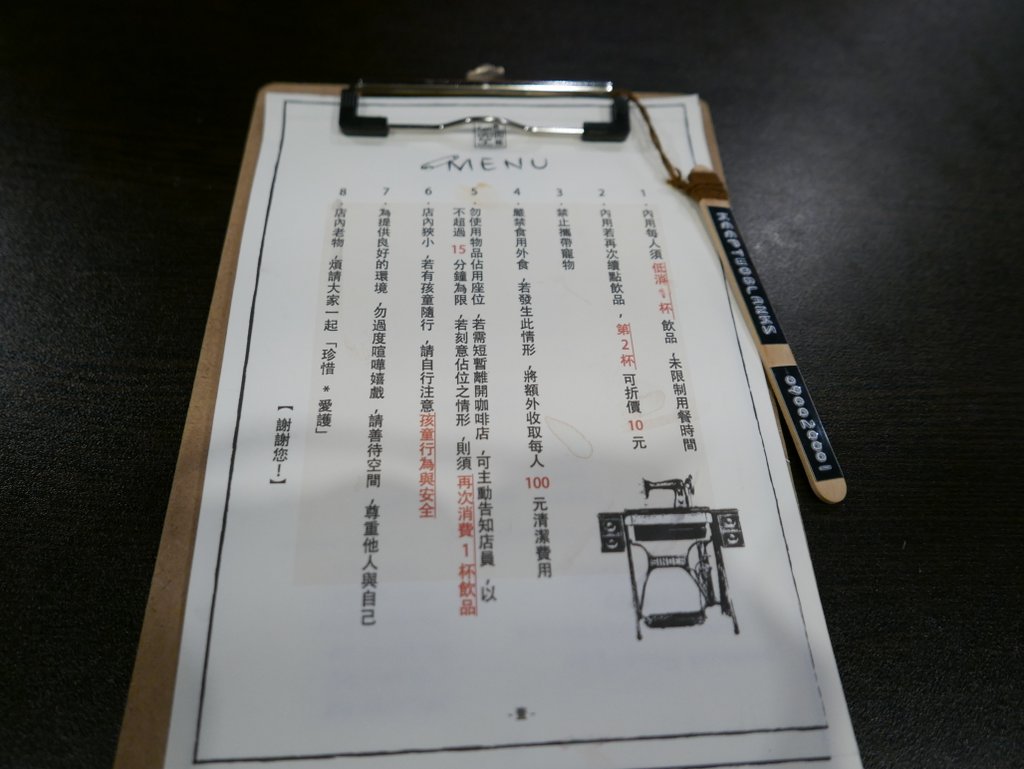 MENU
1. 內用每人須 低消 1 杯 飲品，未限制用餐時間
2. 內用若再次續點飲品，第 2 杯 可折價 10 元
3. 禁止攜帶寵物
4. 嚴禁食用外食，若發生此情形，將額外收取每人 100 元清潔費用
5. 勿使用物品佔用座位，若需短暫離開咖啡店，可主動告知店員，以
不超過 15 分鐘為限，若刻意佔位之情形，則須 再次消費 1 杯飲品
6. 店內狹小，若有孩童隨行，請自行注意孩童行為與安全
7. 為提供良好的環境，勿過度喧嘩嬉戲，請善待空間，尊重他人與自己
8. 店內老物，煩請大家一起「珍惜 * 愛護」
【 謝謝您！】
SINGER
- 壹 -